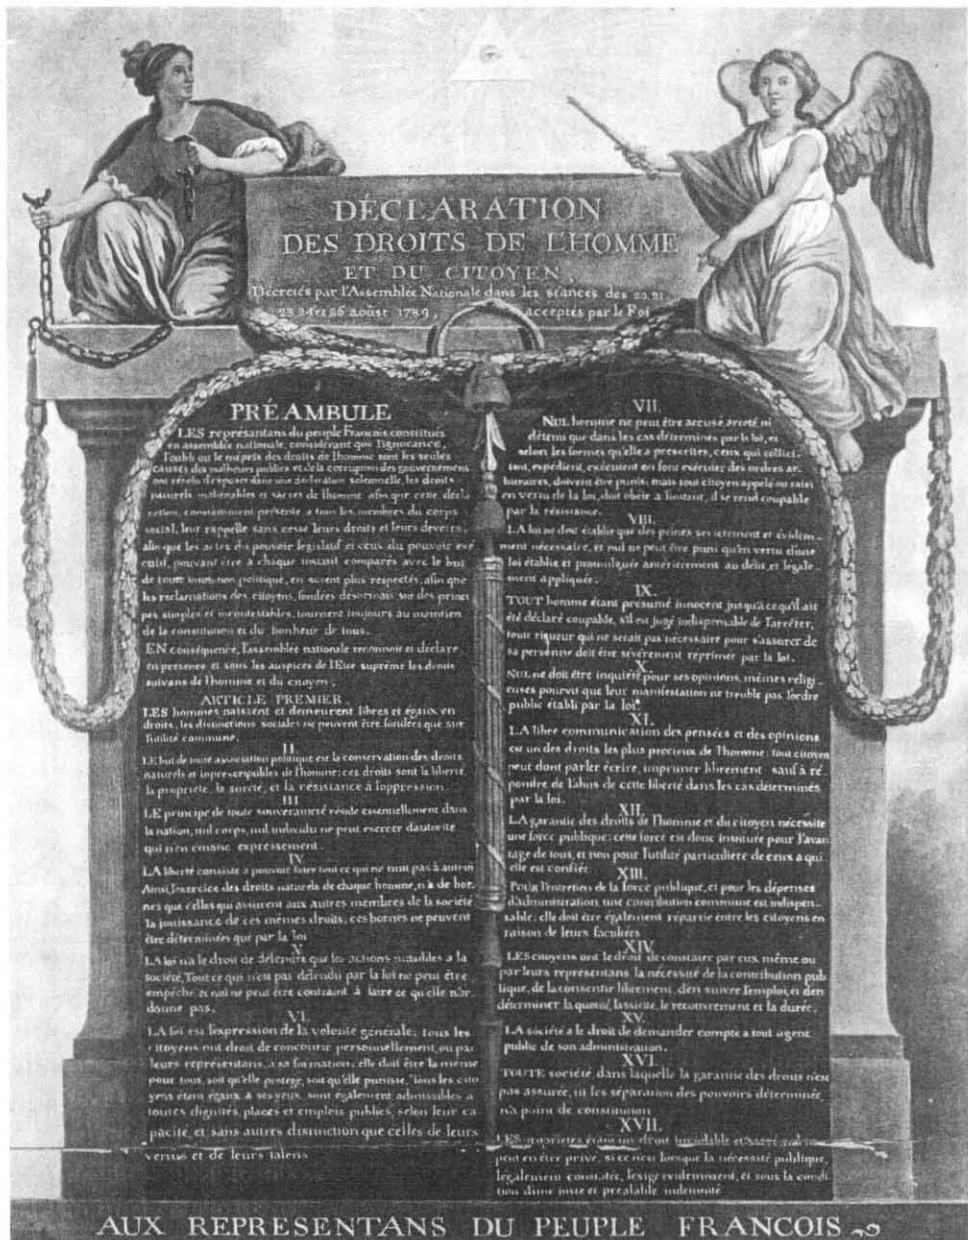 DÉCLARATION
DES DROITS DE L'HOMME
ET DU CITOYEN,
Décretés par l'Assemblée Nationale dans les séances des 20, 21
23, 24 et 26 aoûst 1789, acceptés par le Roi
PRÉAMBULE
LES représantans du peuple François constitués
en assemblée nationale, considérant que l'ignorance,
l'oubli ou le mépris des droits de l'homme sont les seules
causes des malheurs publics et de la corruption des gouvernemens
ont résolu d'exposer dans une déclaration solemnelle, les droits
naturels, inaliénables et sacrés de l'homme afin que cette décla
ration, constamment présente a tous les membres du corps
social, leur rappelle sans cesse leurs droits et leurs devoirs,
afin que les actes du pouvoir législatif et ceux du pouvoir exé
cutif, pouvant être à chaque instant comparés avec le but
de toute institution politique, en soient plus respectés; afin que
les reclamations des citoyens, fondées désormais sur des princi
pes simples et incontestables, tournent toujours au maintien
de la constitution et du bonheur de tous.
EN conséquence, l'assemblée nationale reconnoit et déclare
en presence et sous les auspices de l'Etre suprême les droits
suivans de l'homme et du citoyen.
ARTICLE PREMIER.
LES hommes naissent et demeurent libres et égaux en
droits, les distinctions sociales ne peuvent être fondées que sur
l'utilité commune.
II.
LE but de toute association politique est la conservation des droits
naturels et inprescriptibles de l'homme; ces droits sont la liberté,
la propriété, la sureté, et la résistance à l'oppression.
III.
LE principe de toute souveraineté réside essentiellement dans
la nation, nul corps, nul individu ne peut exercer d'autorité
qui n'en émane expressement.
IV.
LA liberté consiste a pouvoir faire tout ce qui ne nuit pas à autrui
Ainsi, l'exercice des droits naturels de chaque homme, n'a de bor-
nes que celles qui assurent aux autres membres de la société
la jouissance de ces mêmes droits; ces bornes ne peuvent
être déterminées que par la loi
V.
LA loi n'a le droit de défendre que les actions nuisibles a la
société. Tout ce qui n'est pas défendu par la loi ne peut être
empêché, et nul ne peut être contraint à faire ce qu'elle n'or-
donne pas.
VI.
LA loi est l'expression de la volonté générale; tous les
citoyens ont droit de concourir personnellement, ou par
leurs représentans, à sa formation; elle doit être la même
pour tous, soit qu'elle protege, soit qu'elle punisse. Tous les cito
yens étant égaux à ses yeux, sont également admissibles a
toutes dignités, places et emplois publics, selon leur ca
pacité, et sans autres distinction que celles de leurs
vertus et de leurs talens
VII.
NUL homme ne peut être accusé, arreté, ni
détenu que dans les cas déterminés par la loi, et
selon les formes qu'elle a prescrites, ceux qui sollici-
tent, expédient, exécutent ou font exécuter des ordres ar-
bitraires, doivent être punis; mais tout citoyen appelé ou saisi
en vertu de la loi, doit obéir a l'instant, il se rend coupable
par la résistance.
VIII.
LA loi ne doit établir que des peines strictement et évidem-
ment nécessaire, et nul ne peut être puni qu'en vertu d'une
loi établie et promulguée antérierement au délit, et légale-
ment appliquée.
IX.
TOUT homme étant présumé innocent jusqu'à ce qu'il ait
été déclaré coupable, s'il est jugé indispensable de l'arrêter,
toute rigueur qui ne serait pas nécessaire pour s'assurer de
sa personne doit être sévèrement réprimée par la loi.
X.
NUL ne doit être inquiété pour ses opinions, mêmes relig-
ieuses pourvu que leur manifestation ne trouble pas l'ordre
public établi par la loi.
XI.
LA libre communication des pensées et des opinions
est un des droits les plus precieux de l'homme; tout citoyen
peut dont parler écrire, imprimer librement sauf à ré-
pondre de l'abus de cette liberté dans les cas déterminés
par la loi.
XII.
LA garantie des droits de l'homme et du citoyen nécessite
une force publique; cette force est donc instituée pour l'avan-
tage de tous, et non pour l'utilité particulière de ceux a qui
elle est confiée.
XIII.
POUR l'entretien de la force publique, et pour les dépenses
d'administration, une contribution commune est indispen-
sable; elle doit être également répartie entre les citoyens en
raison de leurs facultées
XIV.
LES citoyens ont le droit de constater par eux même ou
par leurs représentans, la nécessité de la contribution pub-
lique, de la consentir librement, d'en suivre l'emploi, et d'en
déterminer la quotité, l'assiette, le recouvrement et la durée.
XV.
LA société a le droit de demander compte a tout agent
public de son administration.
XVI.
TOUTE société, dans laquelle la garantie des droits n'est
pas assurée, ni les séparation des pouvoirs déterminée,
n'a point de constitution
XVII.
LES proprietés étant un droit inviolable et sacré, nul ne
peut en être privé, si ce n'est lorsque la nécessité publique,
légalement constatée, l'exige evidemment, et sous la condi
tion d'une juste et préalable indemnité
AUX REPRESENTANS DU PEUPLE FRANCOIS